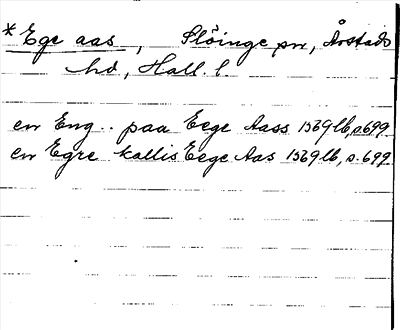 * Ege aas, Slöinge sn, Årstads
hd, Hall. l.
en Eng .. paa Eege Aass 1569 lb, s. 699
en Egre kallis Eege Aas 1569 lb, s. 699